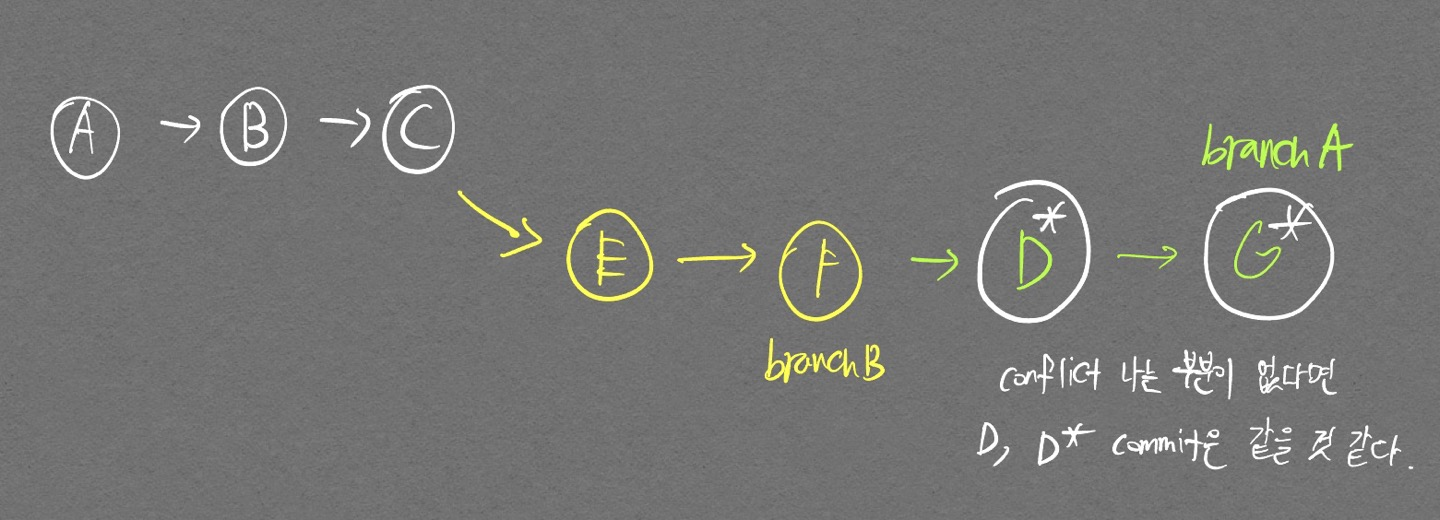 A → B → C
branch A
E → F → D* → G*
branch B
conflict 나는 부분이 없다면
D, D* commit은 같을 것 같다.